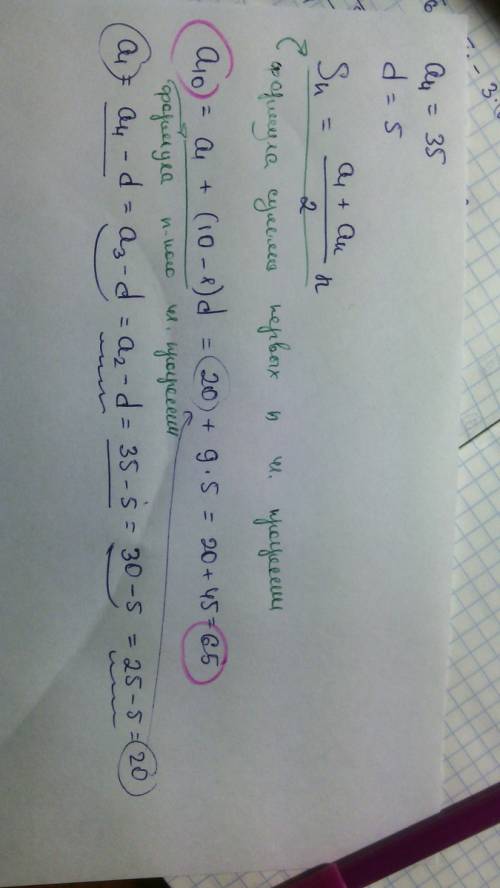 a₄ = 35
d = 5
Sₙ = (a₁ + aₙ)/2 n
формула суммы первых n чл. прогрессии
a₁₀ = a₁ + (10 - 1)d = 20 + 9·5 = 20 + 45 = 65
формула n-ного чл. прогрессии
a₁ = a₄ - d = a₃ - d = a₂ - d = 35 - 5 = 30 - 5 = 25 - 5 = 20